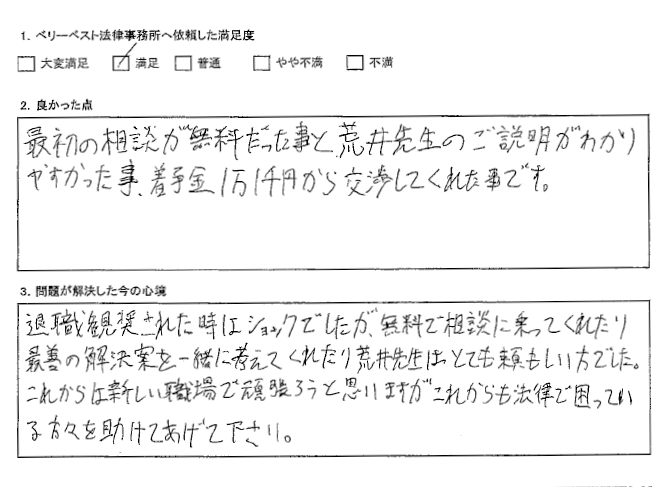 1. ベリーベスト法律事務所へ依頼した満足度
大変満足 満足 普通 やや不満 不満
2. 良かった点
最初の相談が無料だった事と、荒井先生のご説明がわかり
やすかった事、着手金1万1千円から交渉してくれた事です。
3. 問題が解決した今の心境
退職観奨された時はショックでしたが、無料で相談に乗ってくれたり
最善の解決案を一緒に考えてくれたり荒井先生はとても頼もしい方でした。
これからは新しい職場で頑張ろうと思いますがこれからも法律で困ってい
る方々を助けてあげて下さい。